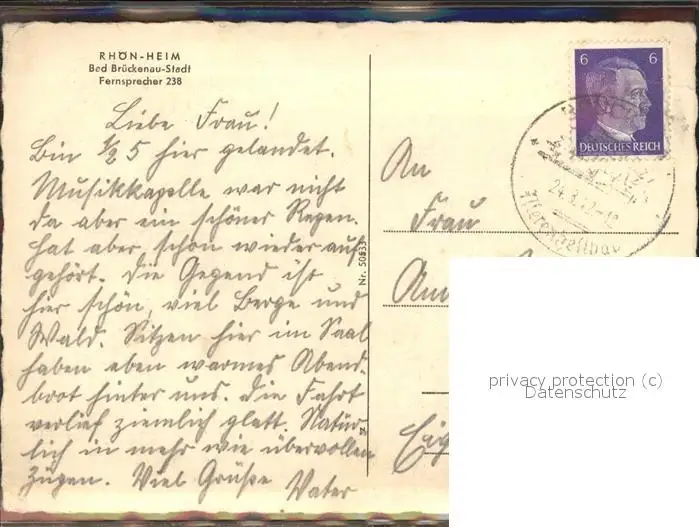 RHÖN-HEIM
Bad Brückenau-Stadt
Fernsprecher 238
Liebe Frau!
Bin ½5 hier gelandet.
Musikkapelle war nicht
da aber ein schöner Regen.
hat aber schon wieder auf
gehört. Die Gegend ist
hier schön, viel Berge und
Wald. Sitzen hier im Saal
haben eben warmes Abend-
brot hinter uns. Die Fahrt
verlief ziemlich glatt. Natür
lich in mehr wie übervollen
Zügen. Viel Grüße
Vater
Nr. 50833
6 6
DEUTSCHES REICH
24.8.42-12
An
Frau
privacy protection (c)
Datenschutz